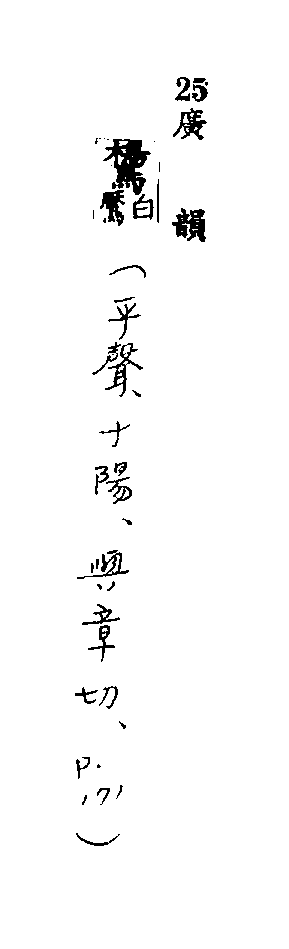 25廣韻
鸉白鷢(平聲、十陽、與章切、P.171)